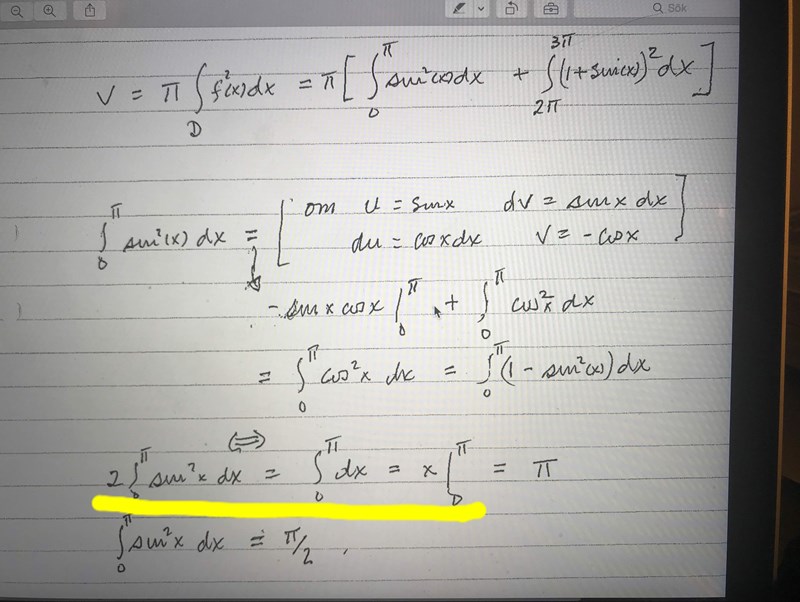 Sök
V = π ∫_D f²(x)dx = π[ ∫_0^π sin²(x)dx + ∫_{2π}^{3π} (1+sin(x))² dx ]
∫_0^π sin²(x) dx = [ om u = sinx dv = sinx dx
du = cosxdx v = -cosx ]
- sinx cosx |_0^π + ∫_0^π cos²x dx
= ∫_0^π cos²x dx = ∫_0^π (1 - sin²(x)) dx
⇔
2 ∫_0^π sin²x dx = ∫_0^π dx = x |_0^π = π
∫_0^π sin²x dx = π/2 .